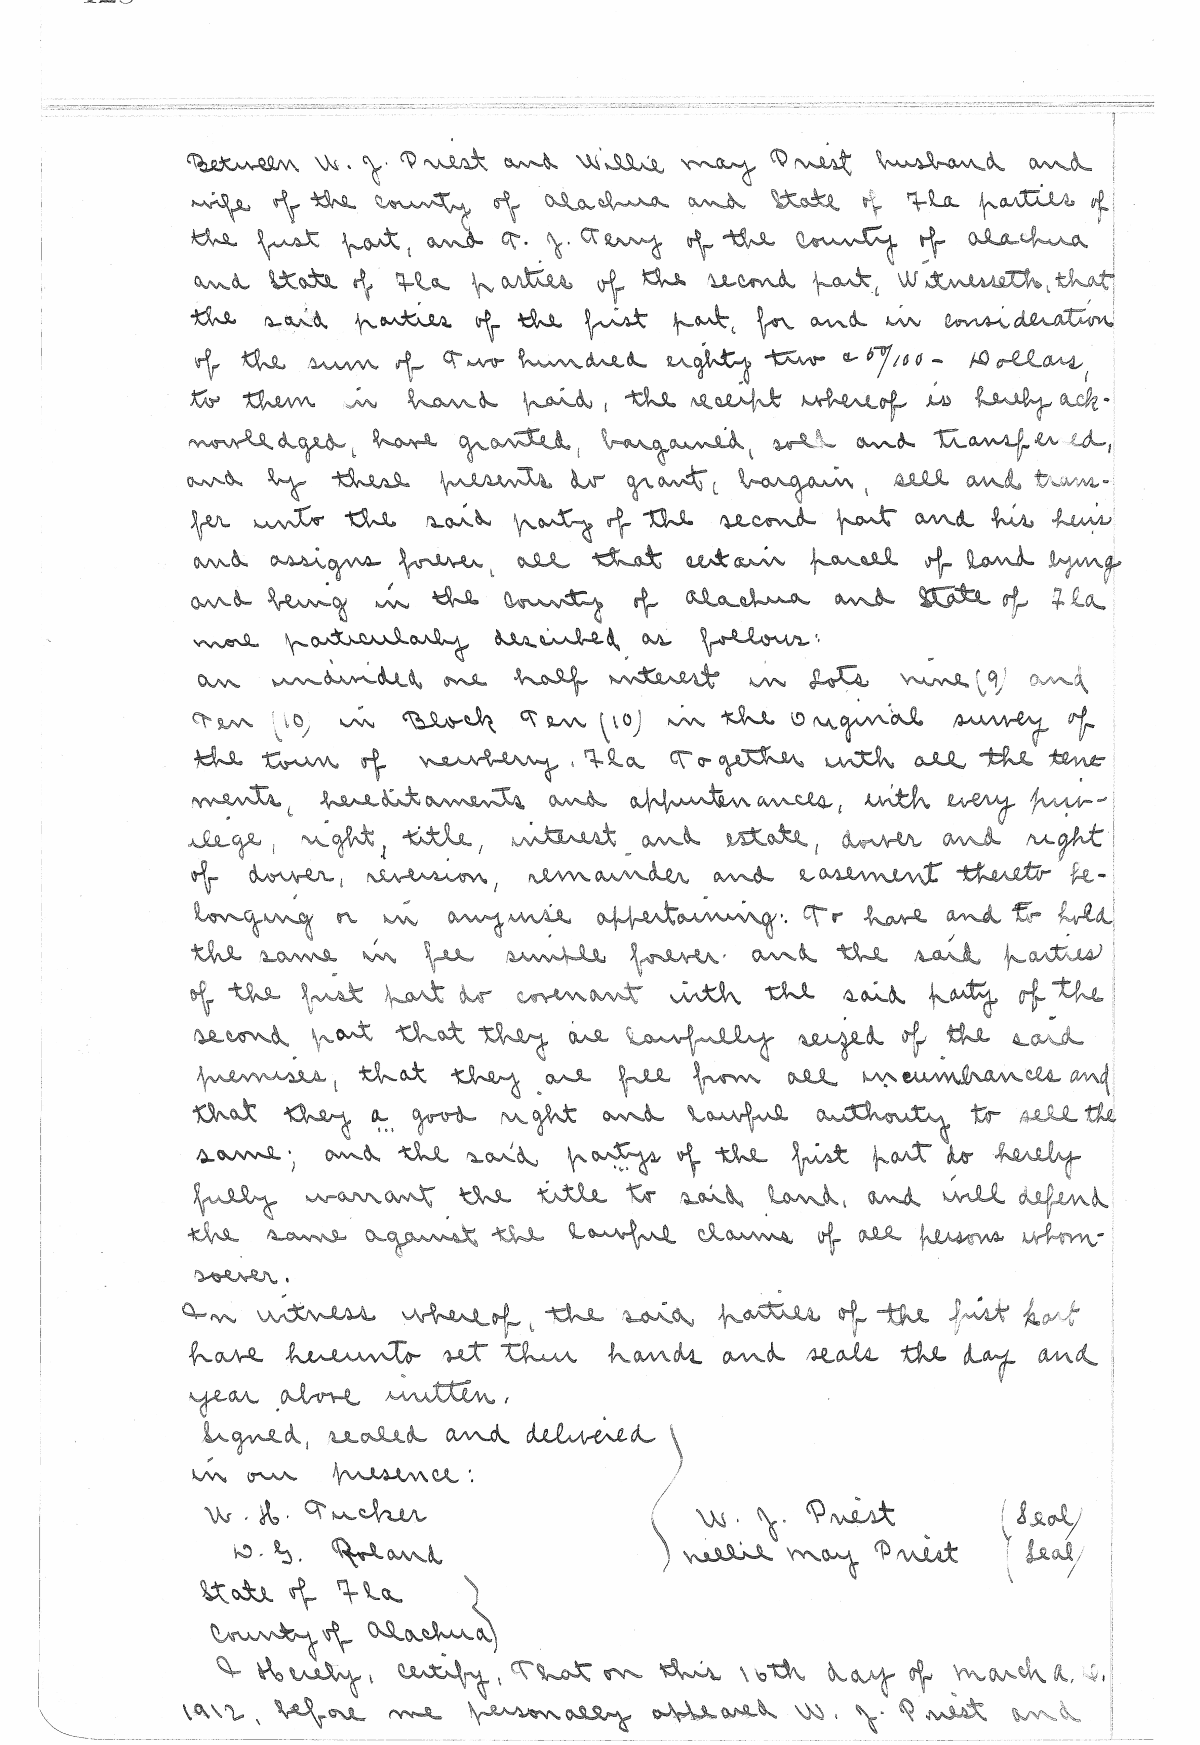 Between W. J. Priest and Willie may Priest husband and
wife of the county of Alachua and State of Fla parties of
the first part, and T. J. Terry of the county of Alachua
and State of Fla parties of the second part, Witnesseth, that
the said parties of the first part, for and in consideration
of the sum of Two hundred eighty two & 50/100 - Dollars,
to them in hand paid, the receipt whereof is hereby ack-
nowledged, have granted, bargained, sold and transfered,
and by these presents do grant, bargain, sell and trans-
fer unto the said party of the second part and his heirs
and assigns forever, all that certain parcell of land lying
and being in the county of Alachua and State of Fla
more particularly described as follows:
an undivided one half interest in Lots nine (9) and
Ten (10) in Block Ten (10) in the Original survey of
the town of newberry, Fla Together with all the tene
ments, hereditaments and appurtenances, with every priv-
ilege, right, title, interest and estate, dower and right
of dower, reversion, remainder and easement thereto be-
longing or in anywise appertaining: To have and to hold
the same in fee simple forever. and the said parties
of the first part do covenant with the said party of the
second part that they are lawfully seized of the said
premises, that they are free from all incumbrances and
that they a good right and lawful authority to sell the
same; and the said partys of the first part do hereby
fully warrant the title to said land, and will defend
the same against the lawful claims of all persons whom-
soever.
In witness whereof, the said parties of the first part
have hereunto set their hands and seals the day and
year above written.
Signed, sealed and delivered
in our presence:
W. H. Tucker W. J. Priest (Seal)
D. G. Roland nellie may Priest (Seal)
State of Fla
County of Alachua
I Hereby, certify, That on this 16th day of march A. D.
1912, before me personally appeared W. J. Priest and